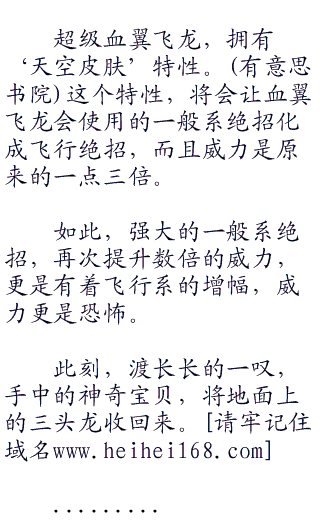 超级血翼飞龙，拥有
‘天空皮肤’特性。(有意思
书院)这个特性，将会让血翼
飞龙会使用的一般系绝招化
成飞行绝招，而且威力是原
来的一点三倍。
如此，强大的一般系绝
招，再次提升数倍的威力，
更是有着飞行系的增幅，威
力更是恐怖。
此刻，渡长长的一叹，
手中的神奇宝贝，将地面上
的三头龙收回来。[请牢记住
域名www.heihei168.com]
.........